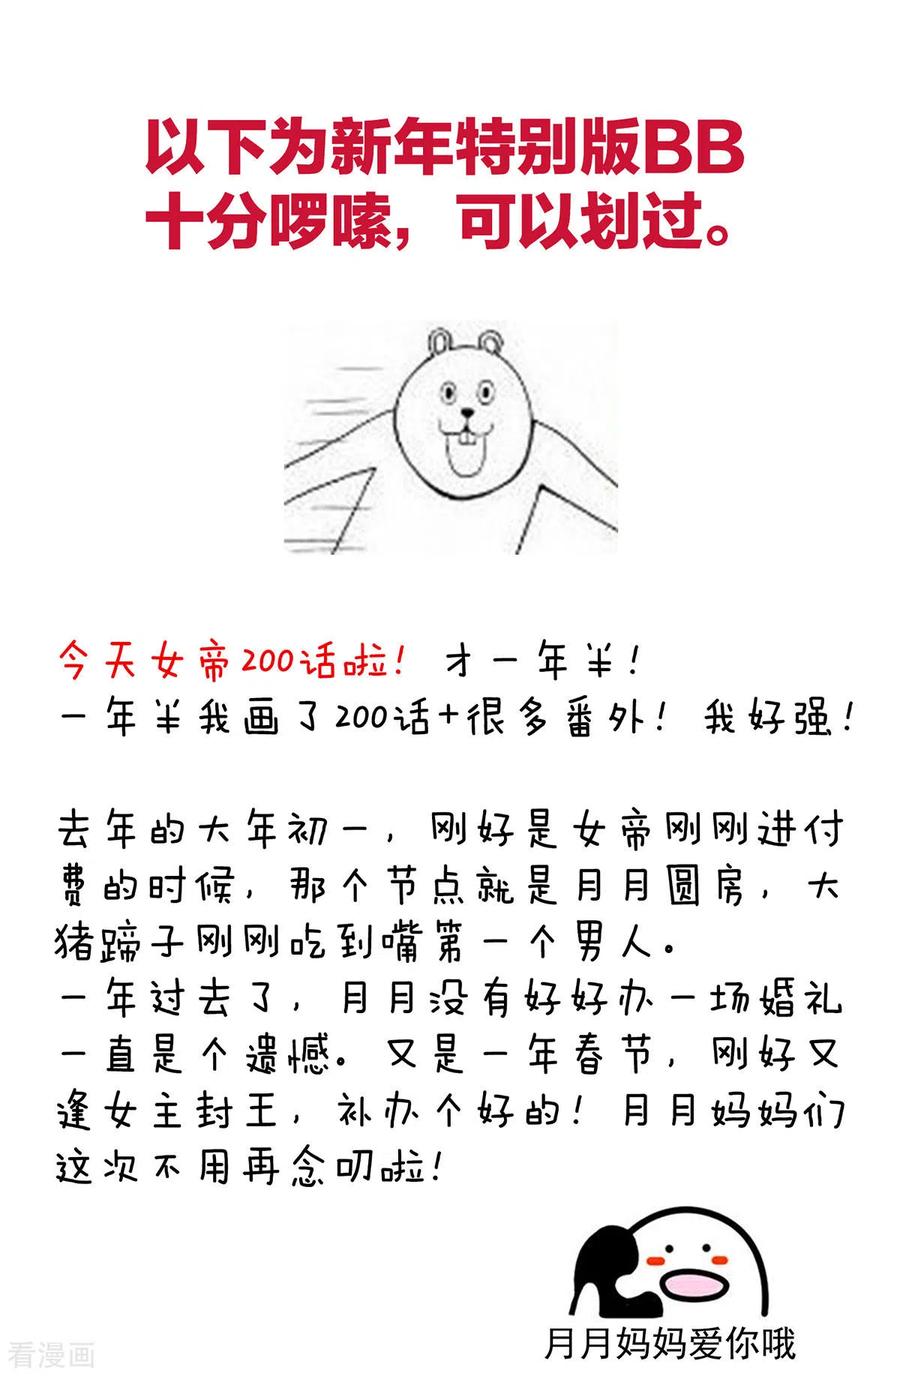 以下为新年特别版BB
十分啰嗦，可以划过。
今天女帝200话啦！才一年半！
一年半我画了200话+很多番外！我好强！
去年的大年初一，刚好是女帝刚刚进付
费的时候，那个节点就是月月圆房，大
猪蹄子刚刚吃到嘴第一个男人。
一年过去了，月月没有好好办一场婚礼
一直是个遗憾。又是一年春节，刚好又
逢女主封王，补办个好的！月月妈妈们
这次不用再念叨啦！
月月妈妈爱你哦
看漫画